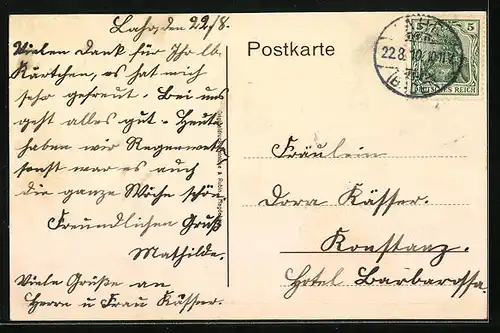 Lahr, den 22/8.
Vielen Dank für Ihr lb.
Kärtchen, es hat mich
sehr gefreut. Bei uns
geht alles gut - Heute
haben wir Regenwetter
sonst war es auch
die ganze Woche schön
Freundlichen Gruß
Mathilde.
Viele Grüße an
Herrn u Frau Kässer.
Postkarte
5
DEUTSCHES REICH
22.8.10.
Fräulein
Dora Kässer.
Konstanz.
Hotel Barbarossa.